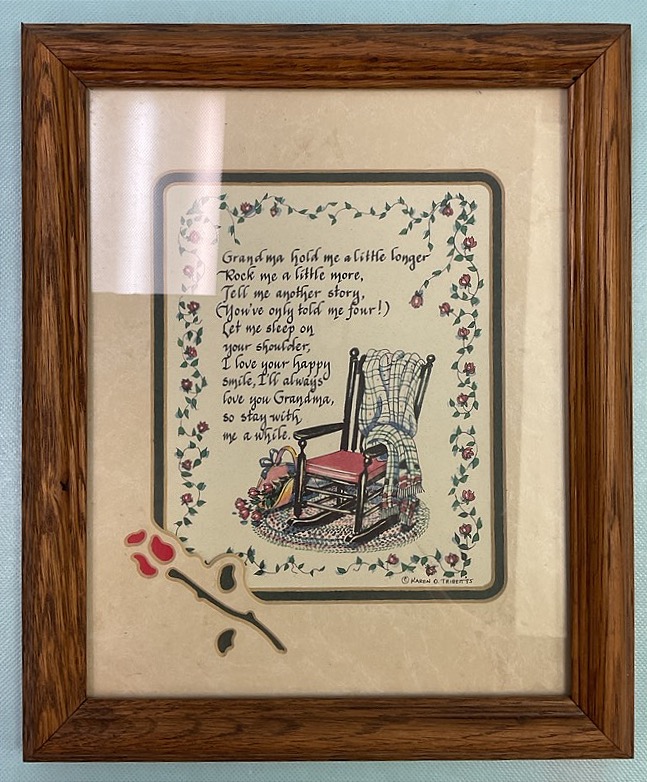 Grandma hold me a little longer
Rock me a little more,
Tell me another story,
(You've only told me four!)
Let me sleep on
your shoulder,
I love your happy
smile, I'll always
love you Grandma,
so stay with
me a while.
© KAREN O. TRIBETTS